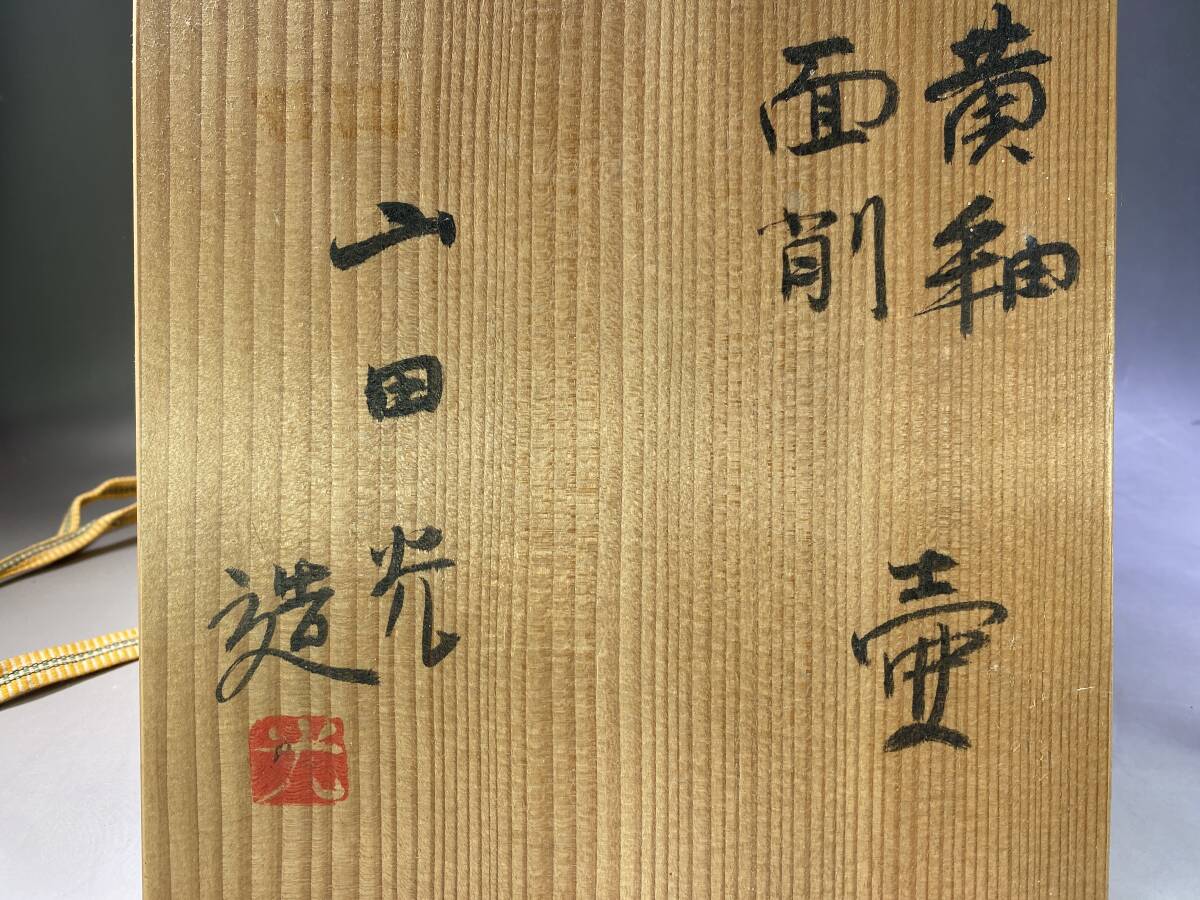 黄釉
面削
壷
山田光
造
光